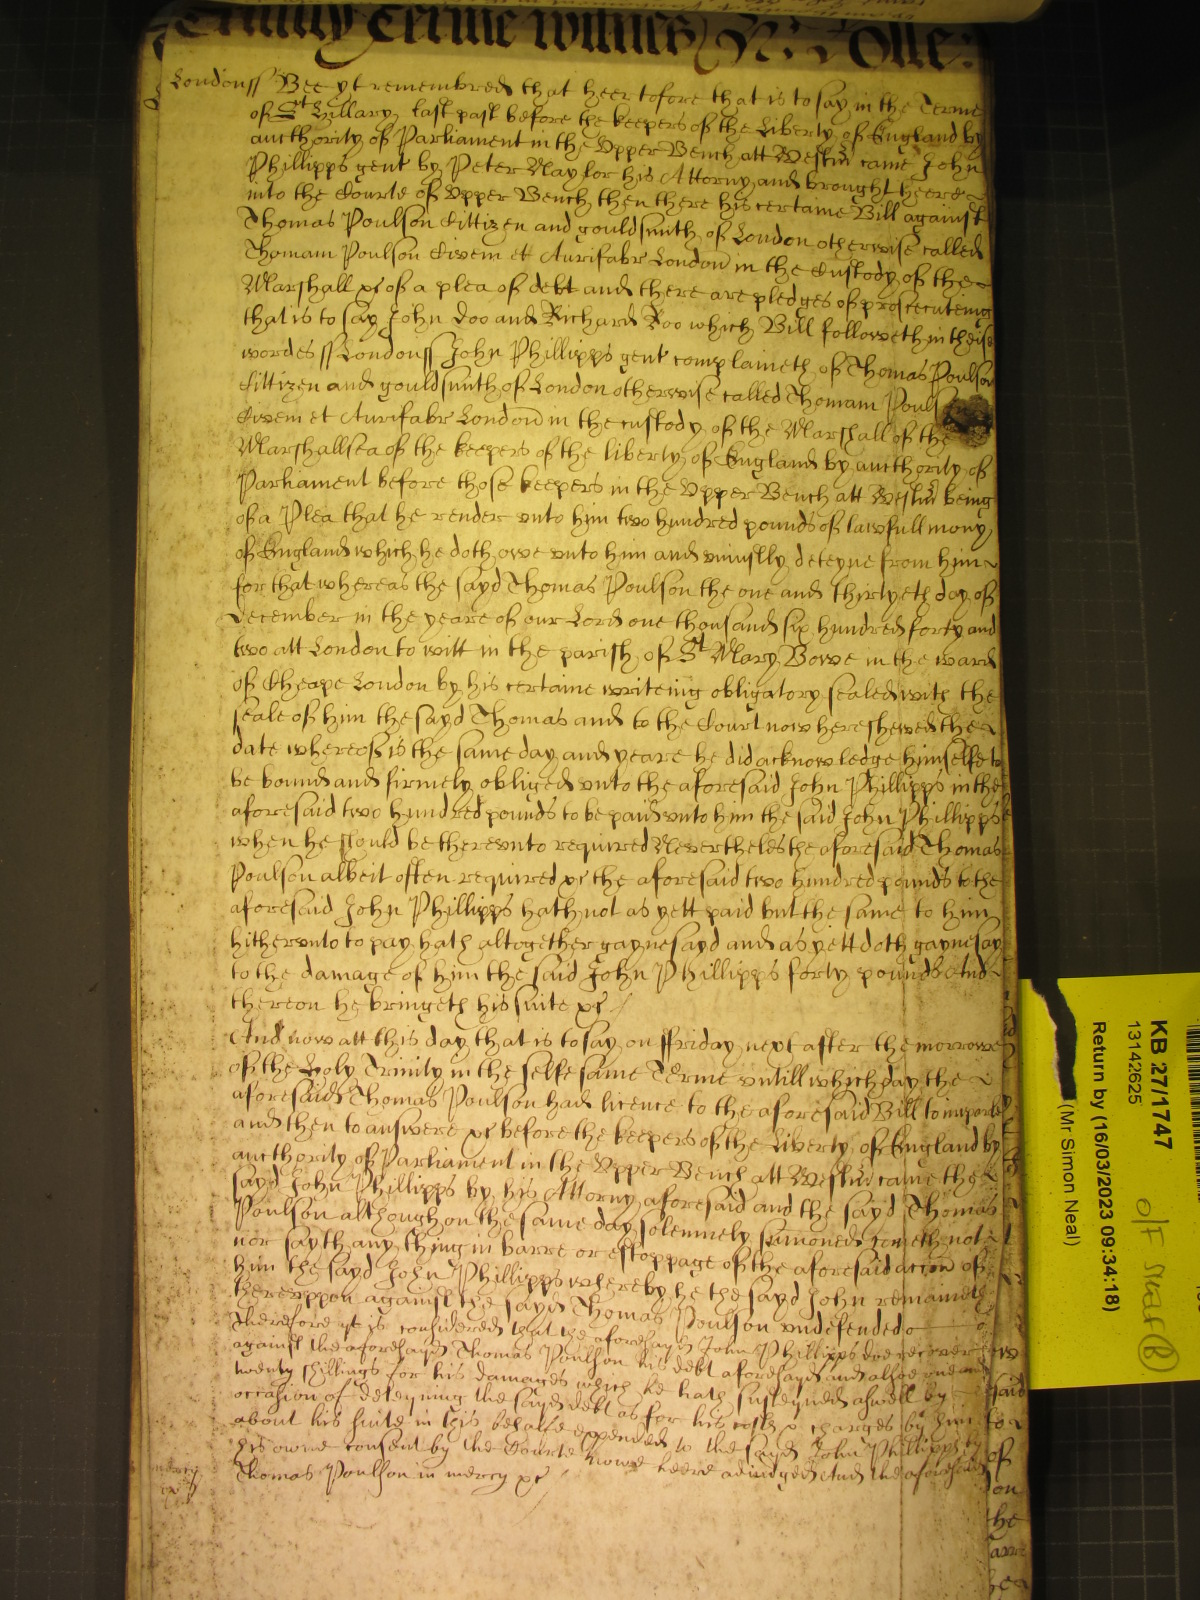 Trinity Terme witnes H: Rolle:
Londonss Bee yt remembred that heertofore that is to say in the Terme
of St Hillary last past before the keepers of the Liberty of England by
aucthority of Parliament in the Upper Bench att Westm̃ came John
Phillipps gent by Peter May for his Attorny and brought heere
into the Courte of Upper Bench then there his certaine Bill against
Thomas Poulson Cittizen and gouldsmith of London otherwise called
Thomam Poulson Civem et Aurifabr London in the Custody of the
Marshall &c of a plea of debt and there are pledges of prosecuteing
that is to say John Doo and Richard Roo which Bill followeth in theise
wordes ss Londonss John Phillipps gent complaineth of Thomas Poulson
Cittizen and gouldsmith of London otherwise called Thomam Pouls
Civem et Aurifabr London in the custody of the Marshall of the
Marshallsea of the keepers of the liberty of England by aucthority of
Parliament before those keepers in the Upper Bench att Westm̃ being
of a Plea that he render unto him two hundred pounds of lawfull mony
of England which he doth owe unto him and uniustly deteyne from him
for that whereas the sayd Thomas Poulson the one and thirtyeth day of
December in the yeare of our Lord one thousand six hundred forty and
two att London to witt in the parish of St Mary Bowe in the ward
of Cheape London by his certaine writeing obligatory sealed with the
seale of him the sayd Thomas and to the Court now here shewed the
date whereof is the same day and yeare he did acknowledge himselfe to
be bound and firmely obliged unto the aforesaid John Phillipps in the
aforesaid two hundred pounds to be paid unto him the said John Phillipps
when he should be thereunto required Neverthelés the aforesaid Thomas
Poulson albeit often required &c the aforesaid two hundred pounds to the
aforesaid John Phillipps hath not as yett paid but the same to him
hitherunto to pay hath altogether gaynesayd and as yett doth gaynesay
to the damage of him the said John Phillipps forty pounds And
thereon he bringeth his suite &c
And now att this day that is to say on ffriday next after the morrowe
of the Holy Trinity in the selfe same Terme untill which day the
aforesaid Thomas Poulson had licence to the aforesaid Bill to imparle
and then to answere &c before the keepers of the Liberty of England by
aucthority of Parliament in the Upper Bench att Westm̃ came the
sayd John Phillipps by his Attorny aforesaid and the sayd Thomas
Poulson although on the same day solemnely sum̃oned cometh not
nor sayth any thing in barre or estoppage of the aforesaid action of
him the sayd John Phillipps whereby he the sayd John remaineth
thereuppon against the sayd Thomas Poulson undefended
Therefore yt is considered that the aforesayd John Phillipps doe recover
against the aforesayd Thomas Poulson his debt aforesayd and alsoe one and
twenty shillings for his damages which he hath susteyned aswell by
occasion of deteyning the sayd debt as for his costs & charges by him
about his suite in this behalfe expended to the sayd John Phillipps by
his owne consent by the Courte nowe heere adiudged And the aforesaid
Thomas Poulson in mercy &c
mercy
&c
KB 27/1747
13142625
Return by (16/03/2023 09:34:18)
(Mr Simon Neal)
said
of
on
the